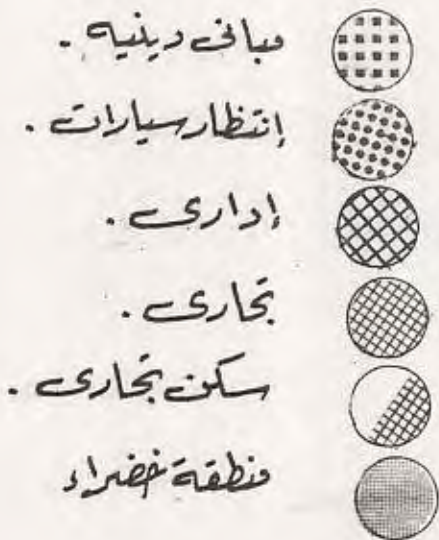 مباني دينيه .
إنتظار سيارات .
إدارى .
تجارى .
سكن تجارى .
منطقة خضراء